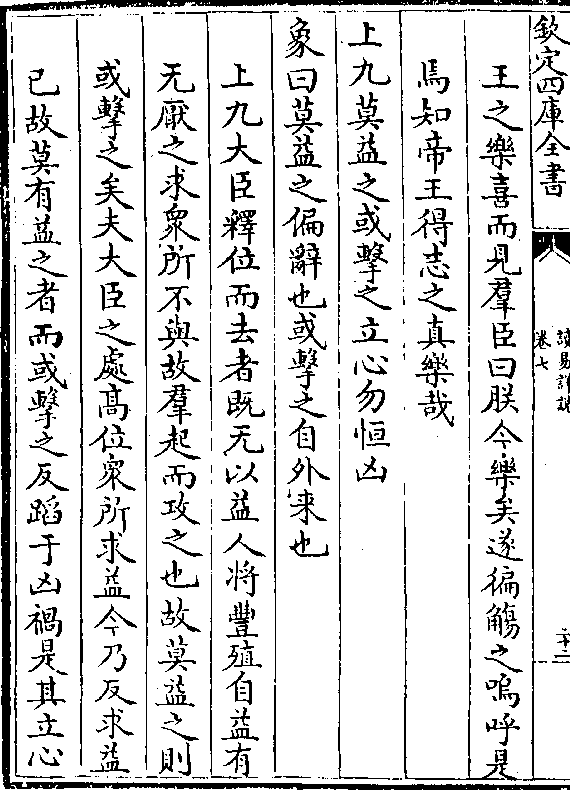 欽定四庫全書
讀易詳說
卷七
二十二
王之樂喜而見羣臣曰朕今樂矣遂徧觴之嗚呼是
焉知帝王得志之真樂哉
上九莫益之或擊之立心勿恒凶
象曰莫益之偏辭也或擊之自外来也
上九大臣釋位而去者既无以益人將豐殖自益有
无厭之求衆所不與故羣起而攻之也故莫益之則
或擊之矣夫大臣之處高位衆所求益今乃反求益
已故莫有益之者而或擊之反蹈于凶禍是其立心